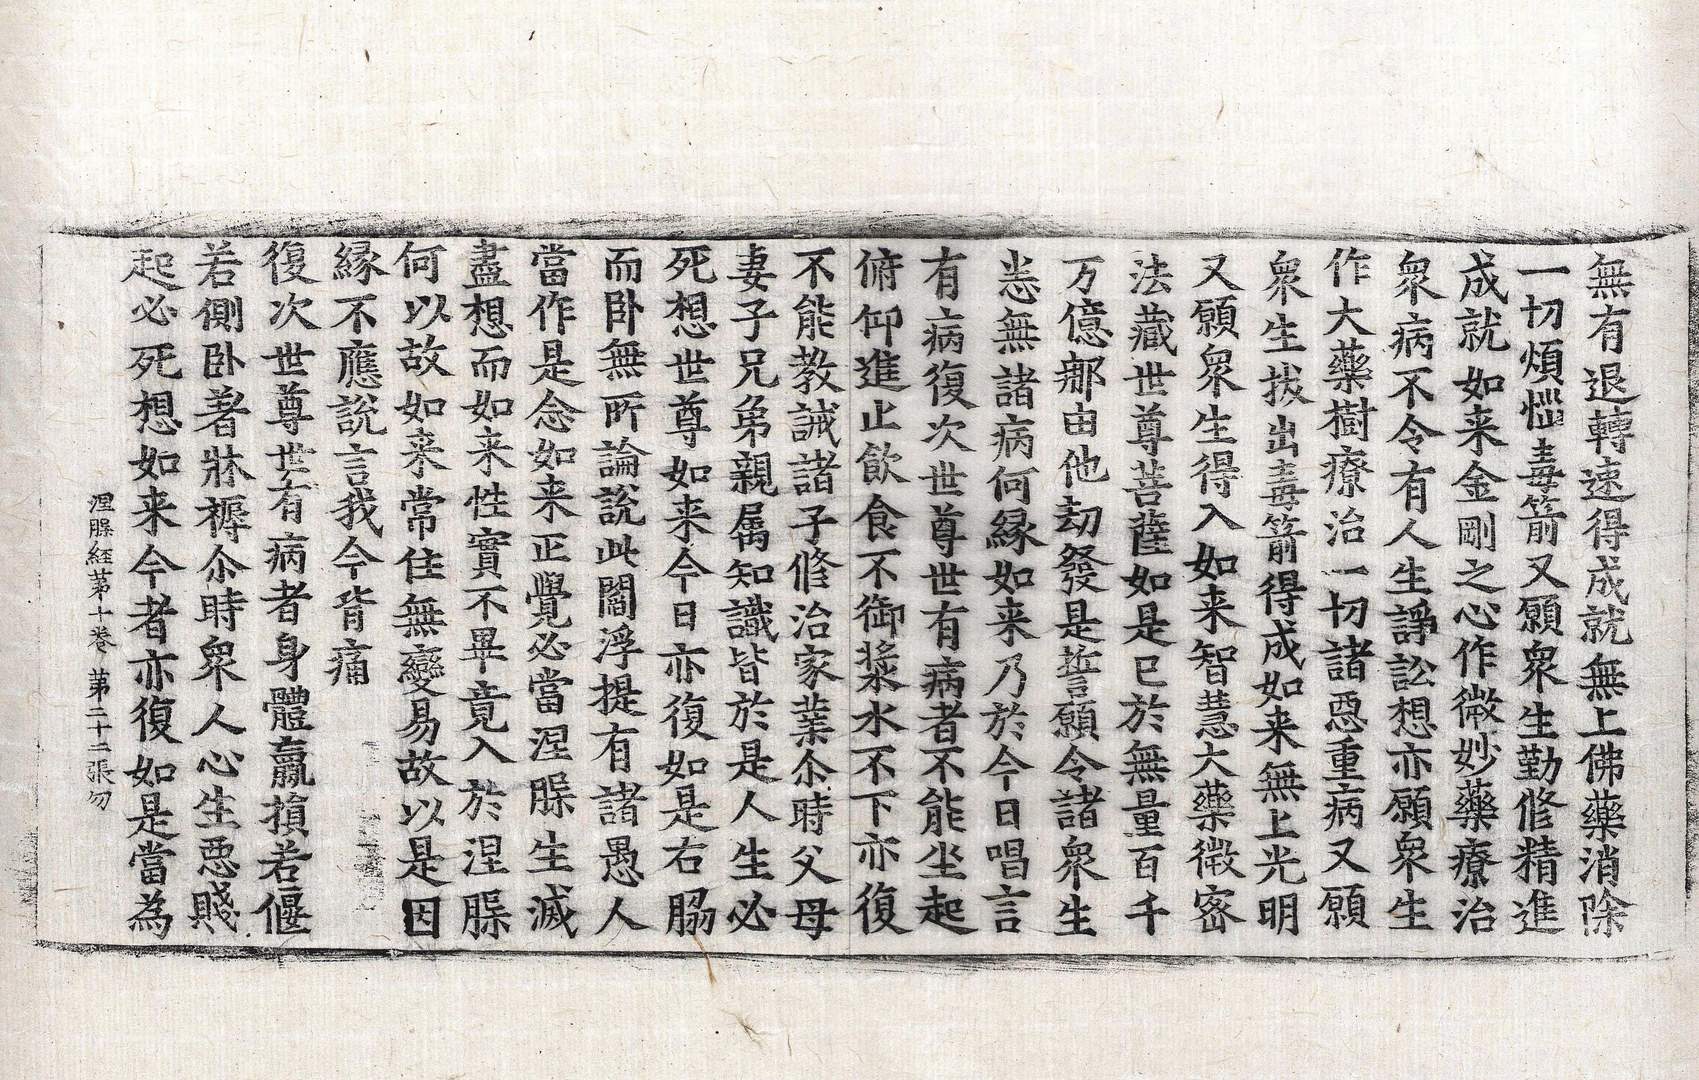 無有退轉速得成就無上佛藥消除
一切煩惱毒箭又願衆生勤修精進
成就如来金剛之心作微妙藥療治
衆病不令有人生諍訟想亦願衆生
作大藥樹療治一切諸惡重病又願
衆生拔出毒箭得成如来無上光明
又願衆生得入如来智慧大藥微密
法藏世尊菩薩如是已於無量百千
万億那由他劫發是誓願令諸衆生
悉無諸病何縁如来乃於今日唱言
有病復次世尊世有病者不能坐起
俯仰進止飲食不御漿水不下亦復
不能教誡諸子修治家業尒時父母
妻子兄弟親属知識皆於是人生必
死想世尊如来今日亦復如是右脇
而卧無所論說此閻浮提有諸愚人
當作是念如来正覺必當涅槃生滅
盡想而如来性實不畢竟入於涅槃
何以故如来常住無變易故以是因
縁不應說言我今背痛
復次世尊世有病者身體羸損若偃
若側卧著牀褥尒時衆人心生惡賤
起必死想如来今者亦復如是當為
涅槃経苐十巻 苐二十二張 勿